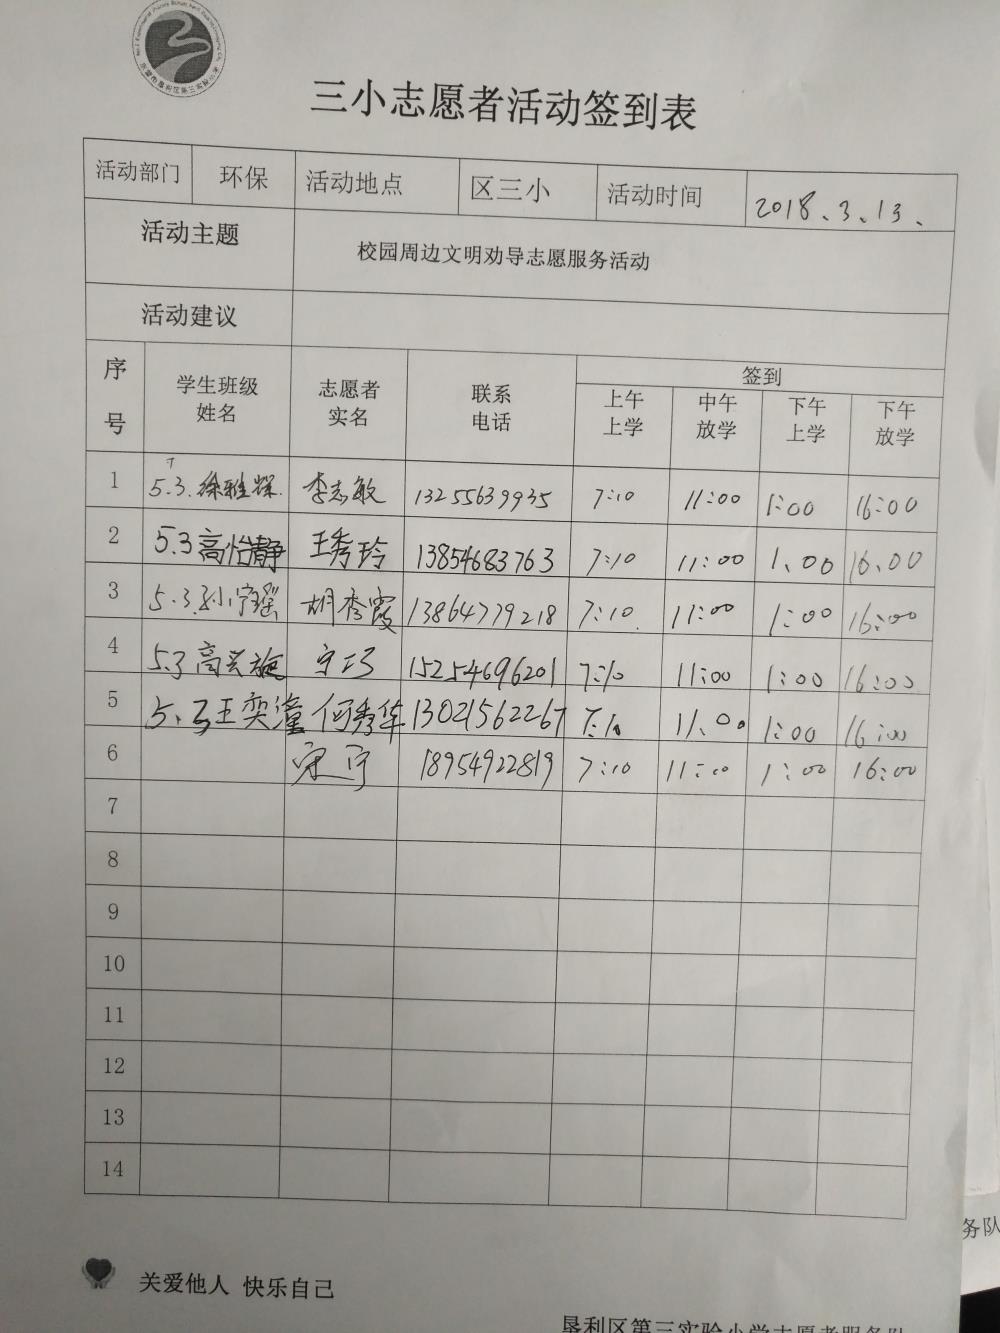 三小志愿者活动签到表
活动部门 环保 活动地点 区三小 活动时间 2018.3.13.
活动主题 校园周边文明劝导志愿服务活动
活动建议
序号 学生班级姓名 志愿者实名 联系电话 签到
上午上学 中午放学 下午上学 下午放学
1 5.3.徐雅 李志敏 13255639935 7:10 11:00 1:00 16:00
2 5.3高怡静 王秀玲 13854683763 7:10 11:00 1.00 16.00
3 5.3.孙宇瑶 胡秀霞 13864779218 7:10. 11:00 1:00 16:00
4 5.3高 15254696201 7:10 11:00 1:00 16:00
5 5.3王奕潼 何秀华 13021562267 7:10 11.00 1:00 16:00
6 宋宁 18954922819 7:10 11:00 1:00 16:00
7
8
9
10
11
12
13
14
关爱他人 快乐自己
垦利区第三实验小学志愿者服务队
务队